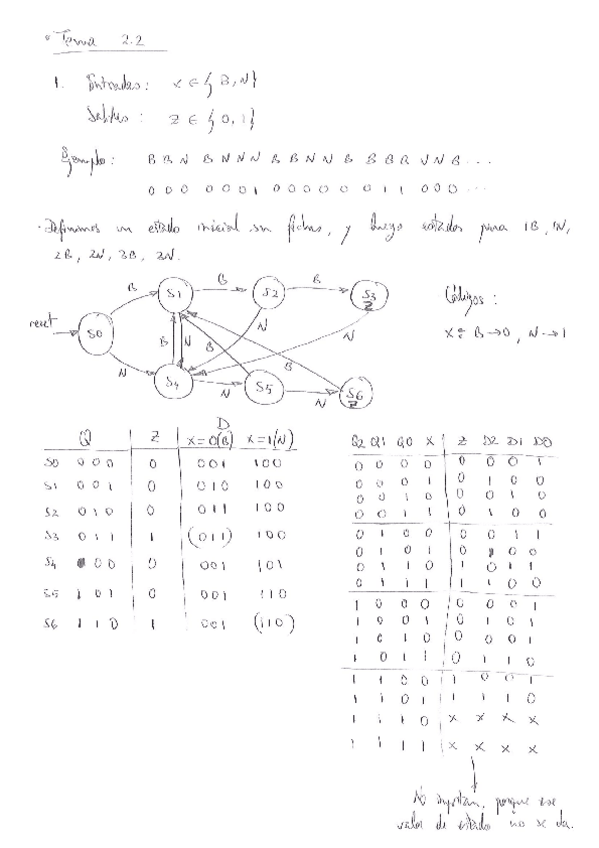 • Tema 2.2
1. Entradas: X ∈ {B, N}
Salidas: Z ∈ {0, 1}
Ejemplo: B B N B N N N B B N N B B B B N N B ...
0 0 0 0 0 0 1 0 0 0 0 0 0 1 1 0 0 0 ...
· Definimos un estado inicial sin fichas, y luego estados para 1B, 1N,
2B, 2N, 3B, 3N.
reset
S0 S1 S2 S3 Z
S4 S5 S6 Z
B B B
N N N
B N B N B N
Códigos:
X: B→0, N→1
D
Q Z X=0(B) X=1(N)
S0 0 0 0 0 001 100
S1 0 0 1 0 010 100
S2 0 1 0 0 011 100
S3 0 1 1 1 (011) 100
S4 100 0 001 101
S5 1 0 1 0 001 110
S6 1 1 0 1 001 (110)
Q2 Q1 Q0 X Z D2 D1 D0
0 0 0 0 0 0 0 1
0 0 0 1 0 1 0 0
0 0 1 0 0 0 1 0
0 0 1 1 0 1 0 0
0 1 0 0 0 0 1 1
0 1 0 1 0 1 0 0
0 1 1 0 1 0 1 1
0 1 1 1 1 1 0 0
1 0 0 0 0 0 0 1
1 0 0 1 0 1 0 1
1 0 1 0 0 0 0 1
1 0 1 1 0 1 1 0
1 1 0 0 1 0 0 1
1 1 0 1 1 1 1 0
1 1 1 0 X X X X
1 1 1 1 X X X X
No importan, porque ese
valor de estado no se da.